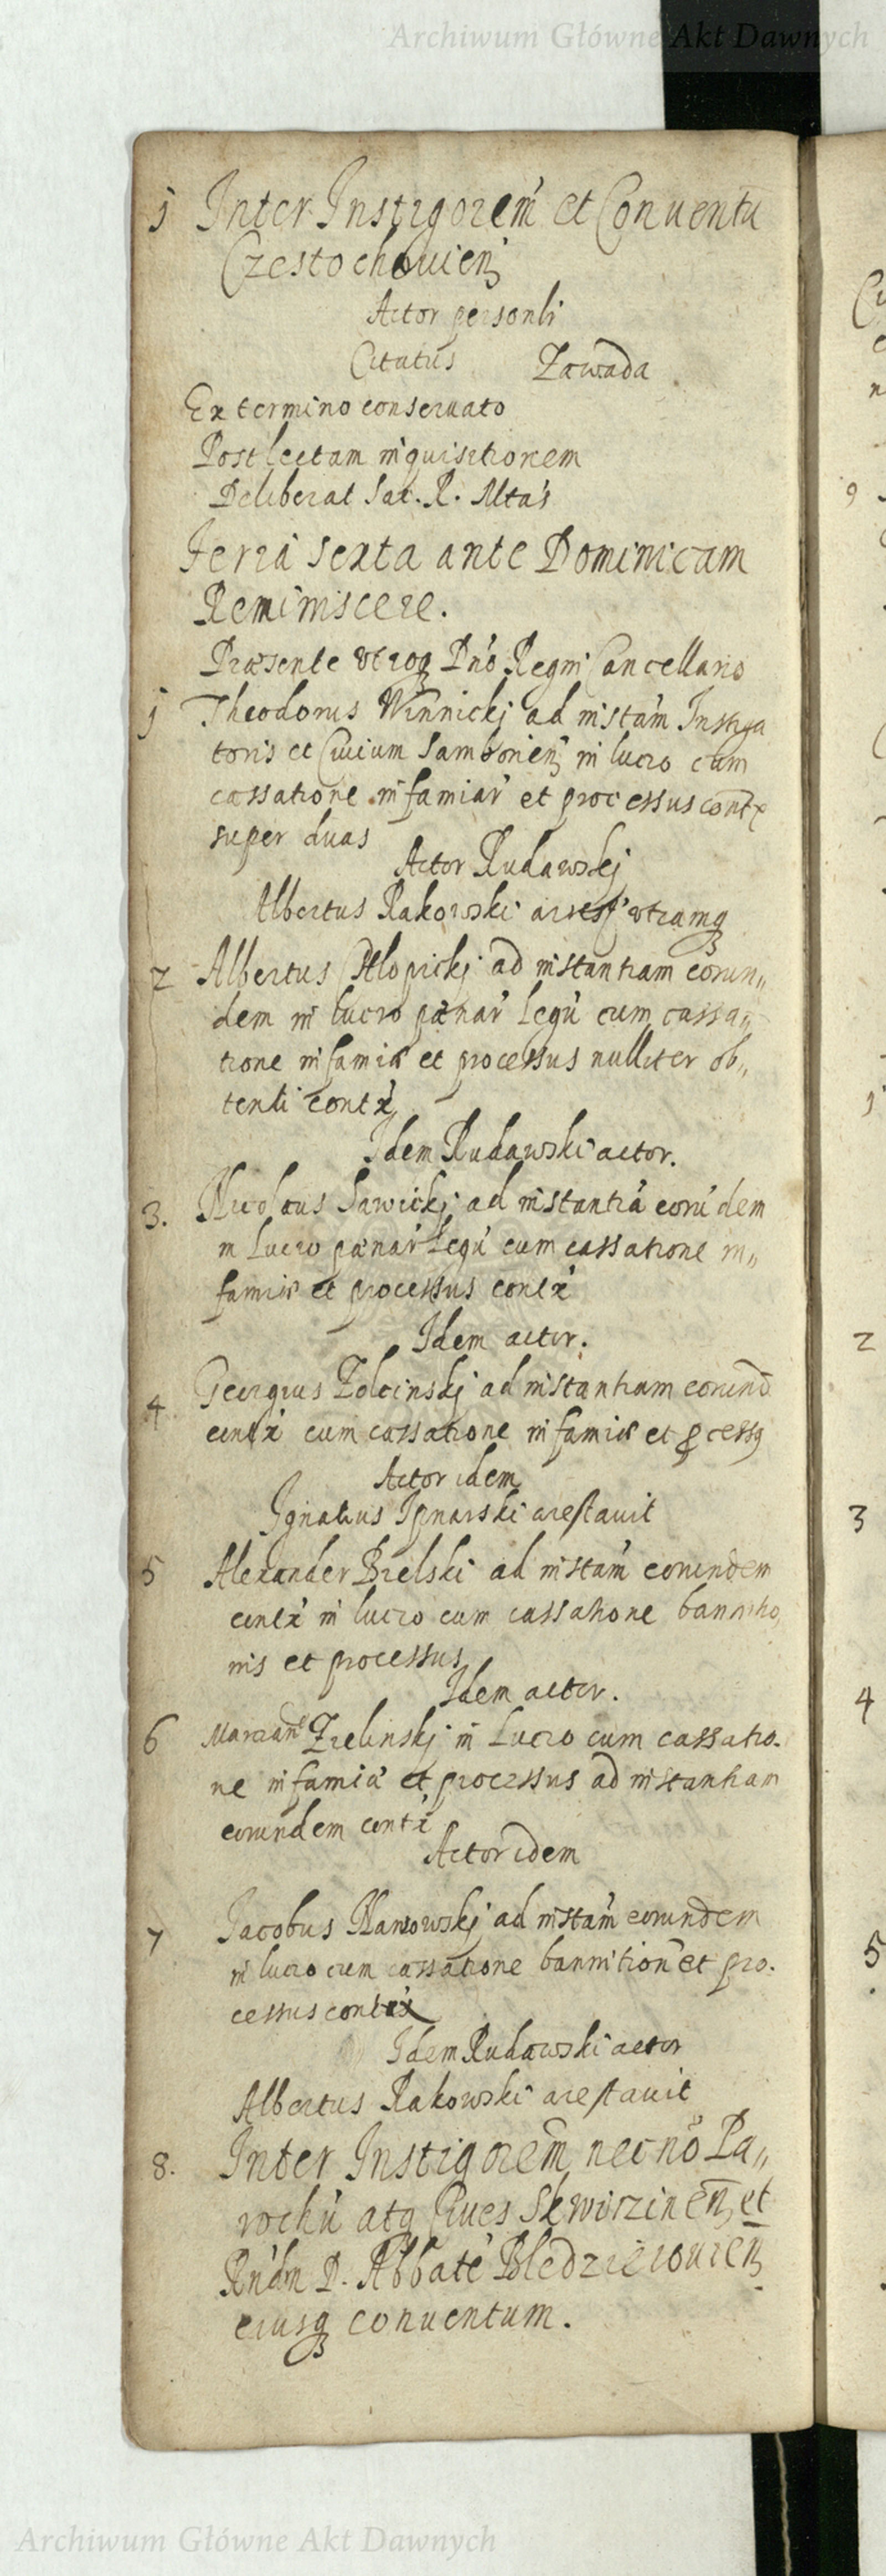 Archiwum Główne Akt Dawnych
1 Inter Instigorem et Conuentu
Czestochouien
Actor personli
Citatus Zawada
Ex termino conseruato
Post lectam inquisitionem
Deliberat Sac. R. Mtas
Feria sexta ante Dominicam
Reminiscere.
Præsente utroq Dno Regni Cancellario
1 Theodorus Winnickj ad instam Instiga
toris et Ciuium Samborien in lucro cum
cassatione infamiæ et processus contx
super duas
Actor Rudawskj
Albertus Rakowski utramq
2 Albertus ad instantiam eorun„
dem in lucro pænar legu cum cassa„
tione infamiæ et processus nulliter ob„
tenti contx
Idem Rudawski actor.
3. Nicolaus Sawickj ad instantia eorudem
in lucro pænar legu cum cassatione in„
famiæ et processus contx
Idem actor.
4 Georgius ad instantiam eorund
contx cum cassatione infamiæ et pcessq
Actor idem
Ignatius arestauit
5 Alexander Bielski ad instam eorundem
contx in lucro cum cassatione bannitio„
nis et processus
Idem actor.
6 Marcian Zielinskj in lucro cum cassatio.
ne infamiæ et processus ad instantiam
eorundem contx
Actor idem
7 Jacobus ad instam eorundem
in lucro cum cassatione bannition et pro.
cessus contx
Idem Rudawski actor
Albertus Rakowski arestauit
8. Inter Instigorem necno Pa„
rochu atq Ciues Skwirzinen et
Rndm D. Abbate Bledzieiouien
eiusq conuentum.
Archiwum Główne Akt Dawnych